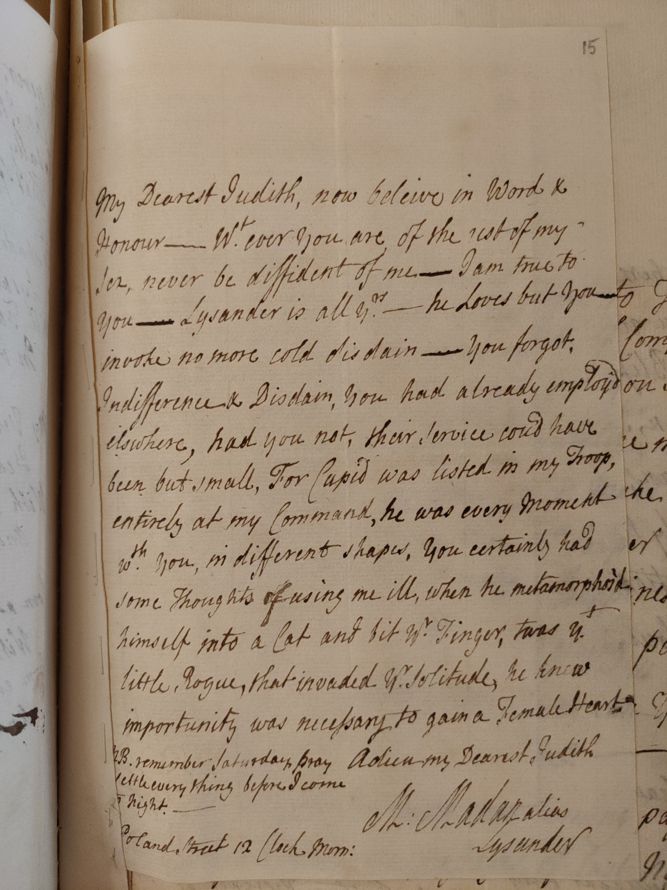 15
My Dearest Judith, now beleive in Word &
Honour — Wt. ever You are, of the rest of my
Sex, never be diffident of me — I am true to
You — Lysander is all Yrs — he Loves but You —
invoke no more cold disdain — You forgot,
Indifference & Disdain, You had already employ'd
elsewhere, had you not, their Service coud have
been but small, For Cupid was listed in my Troop,
entirely at my Command, he was every Moment
wth. You, in different shapes, You certainly had
some Thoughts of using me ill, when he metamorphos'd
himself into a Cat and bit Yr. Finger, twas yt
little Rogue, that invaded Yr. Solitude, he knew
importunity was necessary to gain a Female Heart
NB. remember Saturday, pray
settle every thing before I come
Night. —
Adieu my Dearest Judith
alias
Lysander
Poland Street 12 Clock Morn: